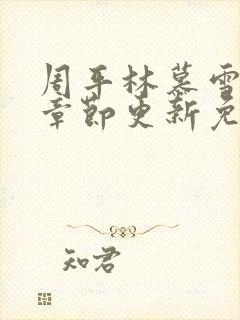 周平林慕雪
章节更新免
知君